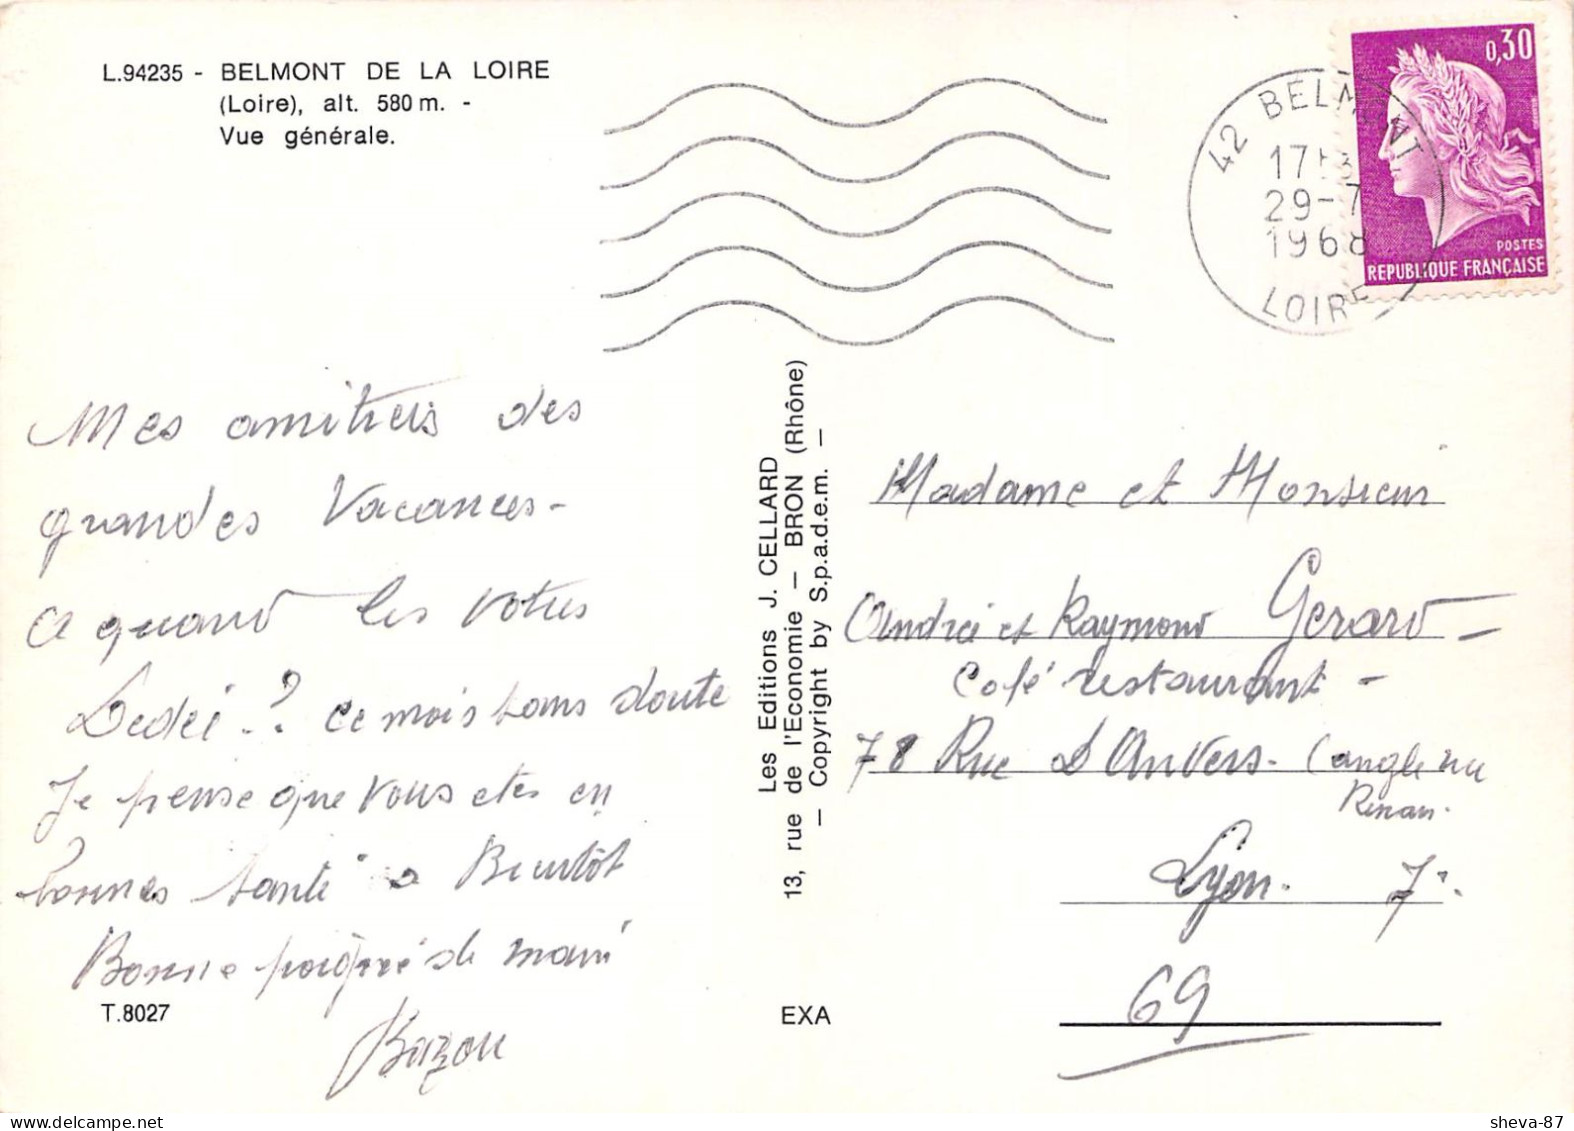 L.94235 - BELMONT DE LA LOIRE
(Loire), alt. 580 m. -
Vue générale.
0,30
POSTES
REPUBLIQUE FRANÇAISE
42 BELMONT
29-7
1968
LOIRE
Mes amitiés des
grandes Vacances -
a quand les votres
Dédéi - ? ce mois sans doute
Je pense que vous etes en
bonnes santé a Bientôt
Bonne poignée de main
Bazou
T.8027
Les Editions J. CELLARD
13, rue de l'Economie - BRON (Rhône)
- Copyright by S.p.a.d.e.m. -
EXA
Madame et Monsieur
André et Raymond Gerard -
Café restaurant -
78 Rue D'Anvers - (angle rue
Renan.
Lyon. 7e.
69
sheva-87